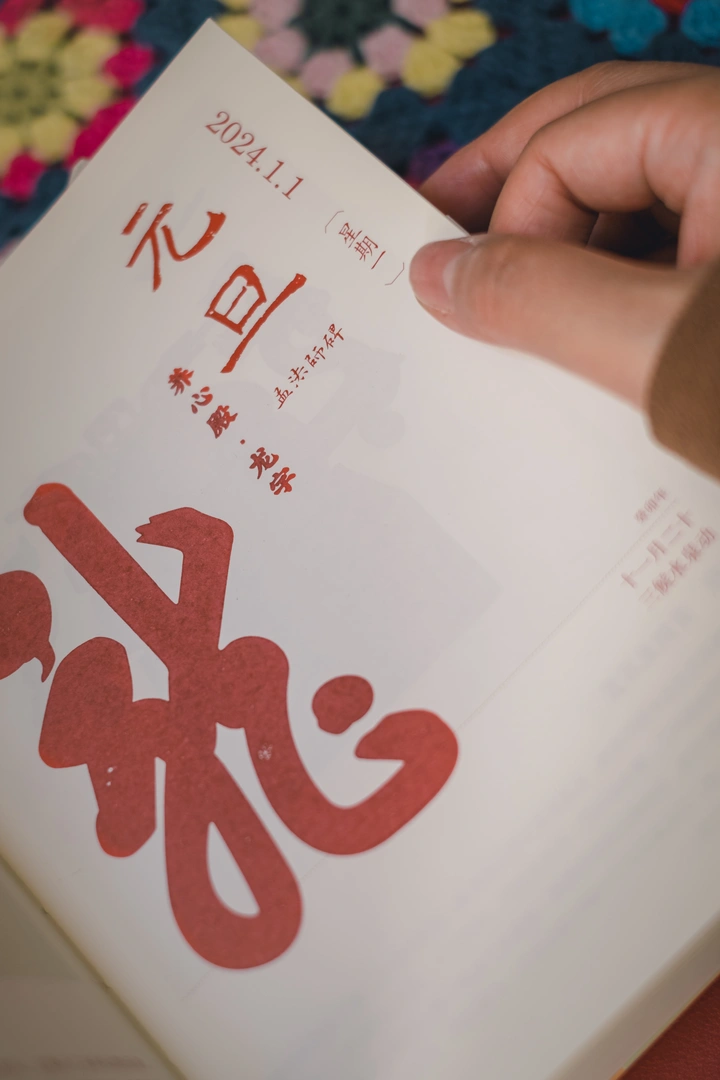 2024.1.1
〔星期一〕
元旦
孟法師碑
养心殿·龙字
龙
癸卯年
十一月二十
三候水泉动